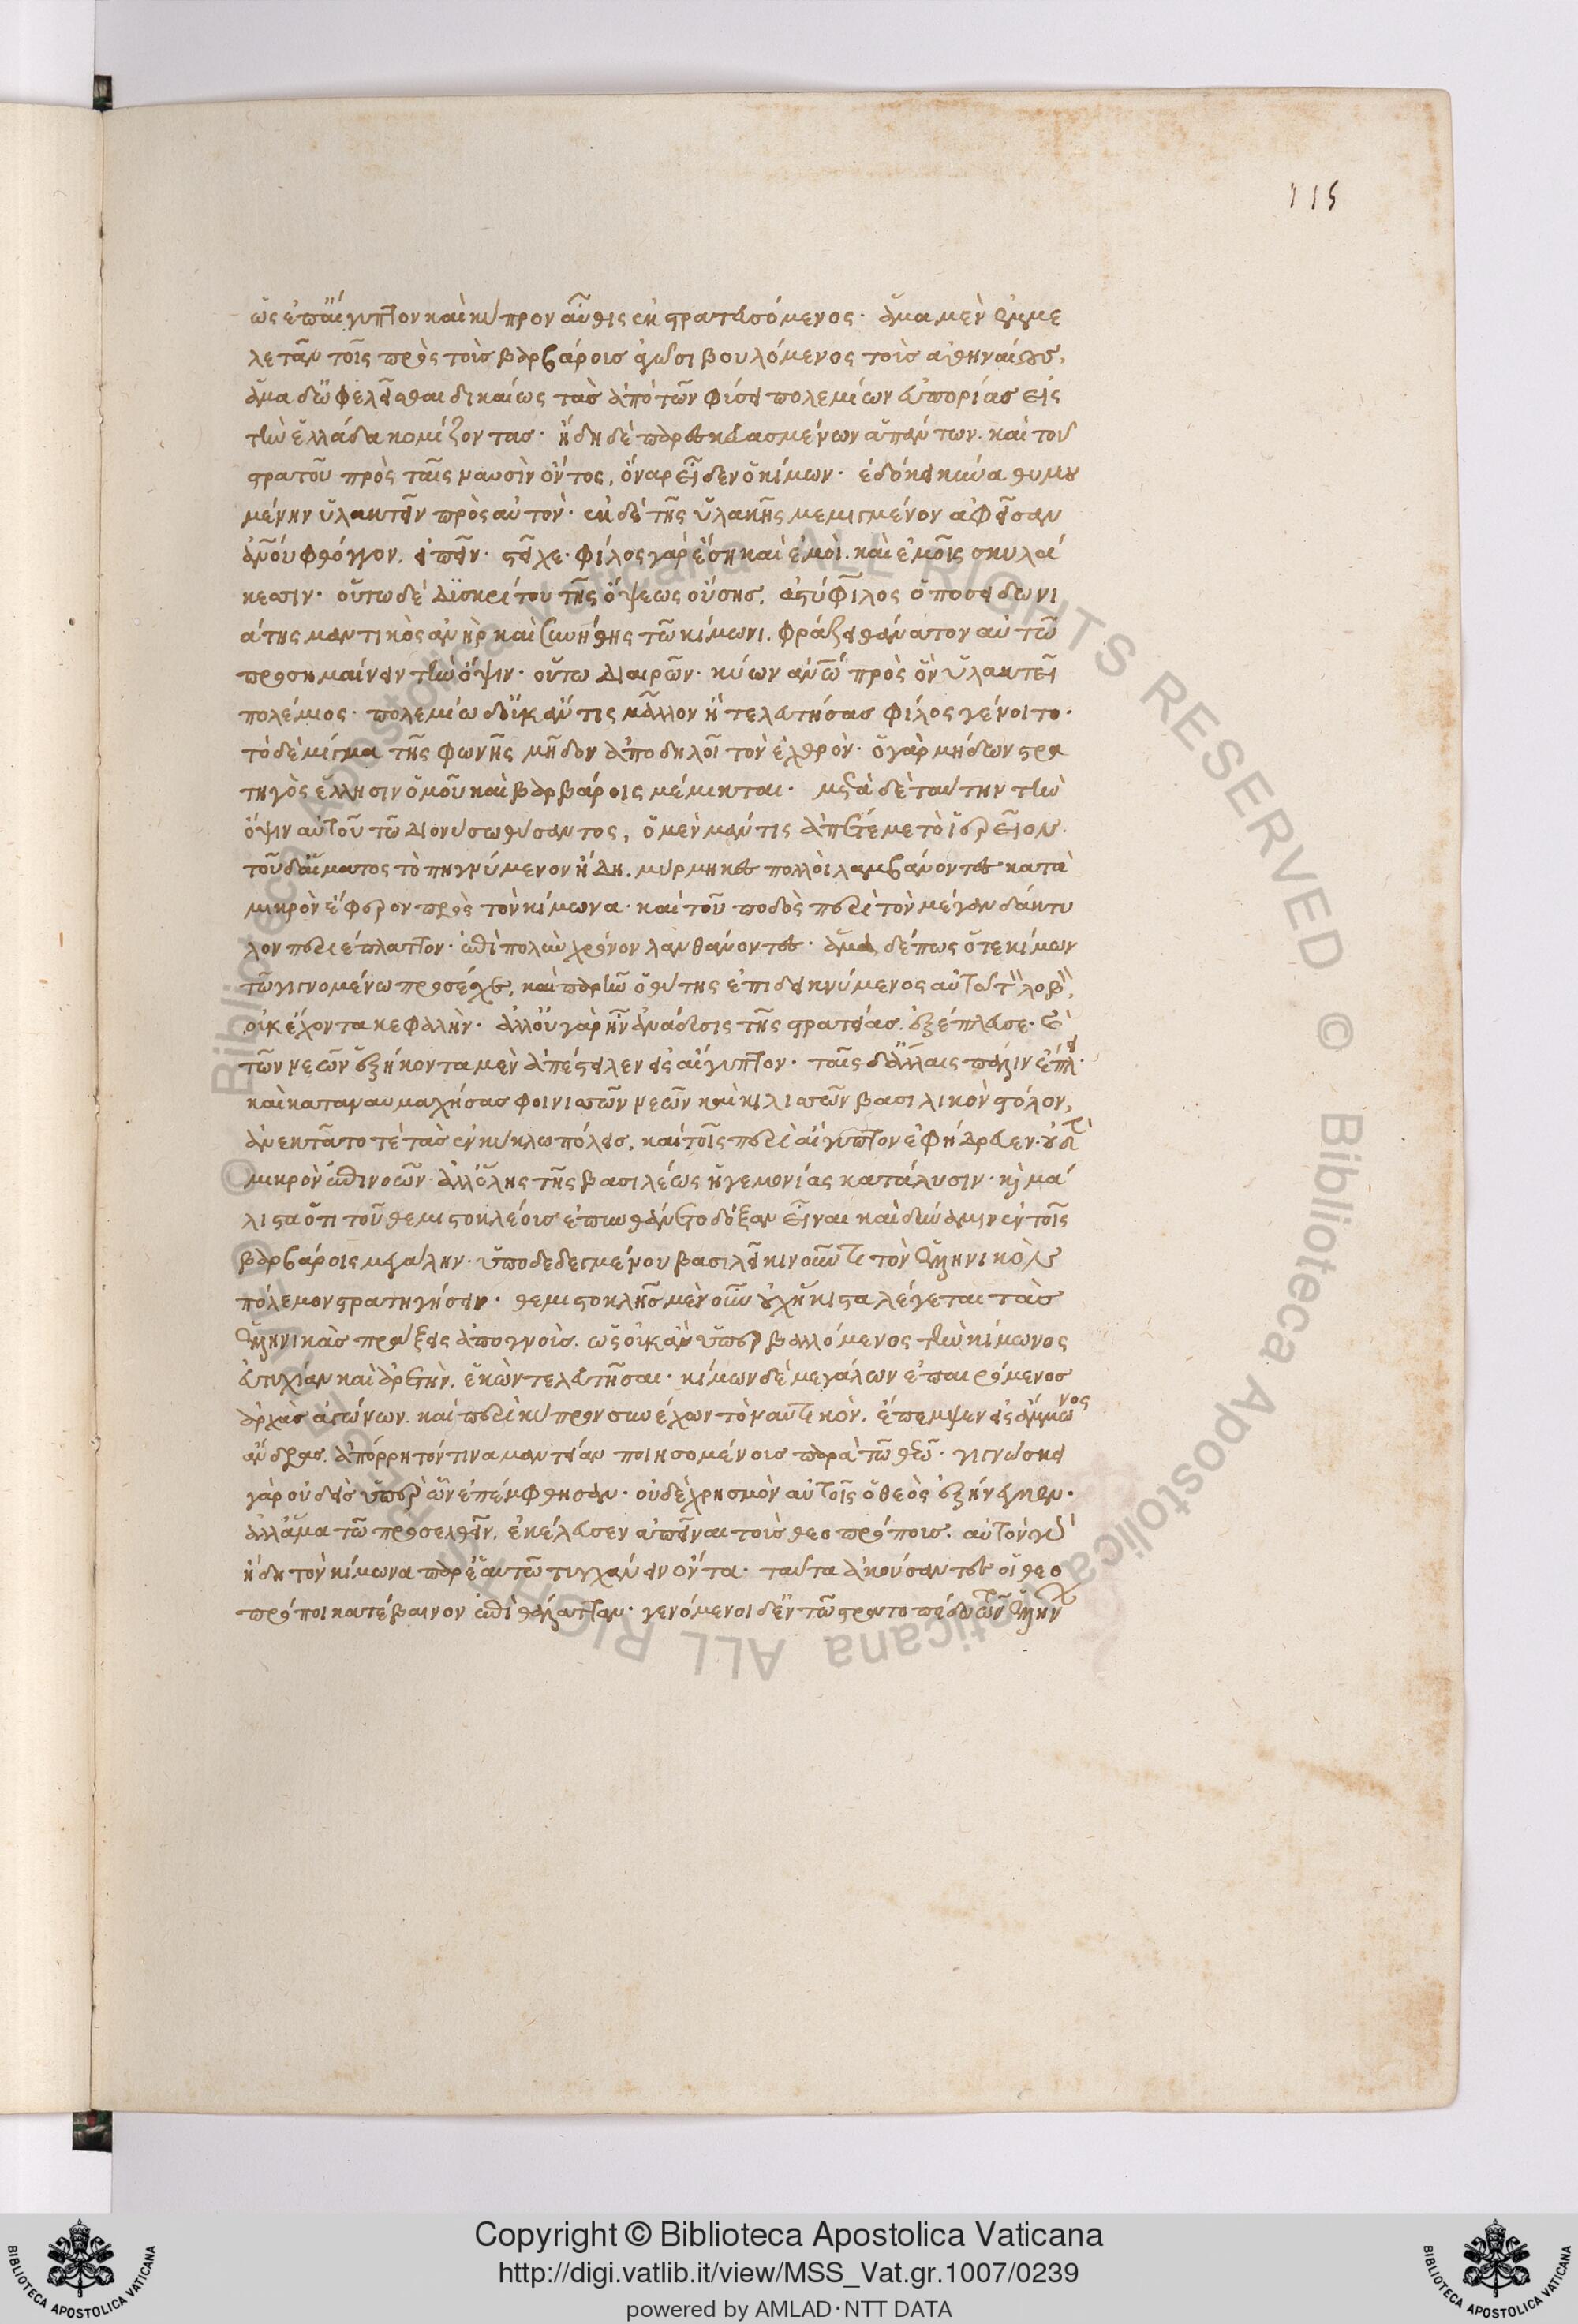 115
ὡς ἐπ' αἴγυπτον καὶ κύπρον αὖθις ἐκστρατευσόμενος· ἅμα μὲν ἐμμε
λετᾶν τοῖς πρὸς τοὺς βαρβάροις ἀγῶσι βουλόμενος τοὺς ἀθηναίους,
ἅμα δ' ὠφελεῖσθαι δικαίως τὰς ἀπὸ τῶν φύσει πολεμίων εὐπορίας εἰς
τὴν ἑλλάδα κομίζοντας· ἤδη δὲ παρεσκευασμένων ἁπάντων. καὶ τοῦ
στρατοῦ πρὸς ταῖς ναυσὶν ὄντος, ὄναρ εἶδεν ὁ κίμων· ἐδόκει κύνα θυμου
μένην ὑλακτεῖν πρὸς αὐτόν· ἐκ δὲ τῆς ὑλακῆς μεμιγμένον ἀφεῖσαν
ἀν̅ου φθόγγον, εἰπεῖν· στεῖχε· φίλος γὰρ ἔση καὶ ἐμοὶ. καὶ ἐμοῖς σκυλά
κεσιν· οὕτω δὲ δυσκρίτου τῆς ὄψεως οὔσης, ἀστύφιλος ὁ ποσειδωνι
άτης μαντικὸς ἀνὴρ καὶ συνήθης τῷ κίμωνι. φράζει θάνατον αὐτῷ
προσημαίνειν τὴν ὄψιν· οὕτω διαιρῶν· κύων ἀν̅ῳ πρὸς ὃν ὑλακτεῖ
πολέμιος· πολεμίῳ δ' οὐκ ἄν τις μᾶλλον ἢ τελευτήσας φίλος γένοιτο·
τὸ δὲ μίγμα τῆς φωνῆς μῆδον ἀποδηλοῖ τὸν ἐχθρόν· ὁ γὰρ μήδων στρα
τηγὸς ἕλλησιν ὁμοῦ καὶ βαρβάροις μέμικται· μετὰ δὲ ταύτην τὴν
ὄψιν αὐτοῦ τῷ διονύσῳ θύσαντος, ὁ μὲν μάντις ἀπέτεμε τὸ ἱερεῖον·
τοῦ δ' αἵματος τὸ πηγνύμενον ἤδη. μύρμηκες πολλοὶ λαμβάνοντες κατὰ
μικρὸν ἔφερον πρὸς τὸν κίμωνα· καὶ τοῦ ποδὸς περὶ τὸν μέγαν δάκτυ
λον περιέπλαττον· ἐπὶ πολὺν χρόνον λανθάνοντες· ἅμα δέ πως ὅτε κίμων
τῷ γινομένῳ προσέσχε, καὶ παρῆν ὁ θύτης ἐπιδεικνύμενος αὐτῷ τ λοβ,
οὐκ ἔχοντα κεφαλήν· ἀλλ' οὐ γὰρ ἦν ἀνάδυσις τῆς στρατείας. ἐξέπλευσε· καὶ
τῶν νεῶν ἑξήκοντα μὲν ἀπέστειλεν εἰς αἴγυπτον· ταῖς δ' ἄλλαις πάλιν ἐπλει·
καὶ καταναυμαχήσας φοινισσῶν νεῶν καὶ κιλισσῶν βασιλικὸν στόλον,
ἀνεκτᾶτό τε τὰς ἐν κύκλῳ πόλεις, καὶ τοῖς περὶ αἴγυπτον ἐφήδρευεν· οὐδὲν
μικρὸν ἐπινοῶν· ἀλλ' ὅλης τῆς βασιλέως ἡγεμονίας κατάλυσιν· καὶ μά
λιστα ὅτι τοῦ θεμιστοκλέους ἐπυνθάνετο δόξαν εἶναι καὶ δύναμιν ἐν τοῖς
βαρβάροις μεγάλην· ὑποδεδεγμένου βασιλεῖ κινοῦντι τὸν ἑλληνικὸν
πόλεμον στρατηγήσειν· θεμιστοκλῆς μὲν οὖν οὐχ ἥκιστα λέγεται τὰς
ἑλληνικὰς πράξεις ἀπογνοὺς. ὡς οὐκ ἂν ὑπερβαλλόμενος τὴν κίμωνος
εὐτυχίαν καὶ ἀρετὴν, ἑκὼν τελευτῆσαι· κίμων δὲ μεγάλων ἐπαιρόμενος
ἀρχὰς ἀγώνων. καὶ περὶ κύπρον συνέχων τὸ ναυτικὸν, ἔπεμψεν εἰς ἄμμωνος
ἄνδρας. ἀπόρρητόν τινα μαντείαν ποιησομένους παρὰ τῷ θεῷ· γινώσκει
γὰρ οὐδεὶς ὑπὲρ ὧν ἐπέμφθησαν· οὐδὲ χρησμὸν αὐτοῖς ὁ θεὸς ἐξήνεγκεν·
ἀλλ' ἅμα τῷ προσελθεῖν, ἐκέλευσεν ἀπιέναι τοὺς θεοπρόπους. αὐτὸν γὰρ
ἤδη τὸν κίμωνα παρ' ἑαυτῷ τυγχάνειν ὄντα· ταῦτα ἀκούσαντες οἱ θεο
πρόποι κατέβαινον ἐπὶ θάλατταν· γενόμενοι δ' ἐν τῷ στρατοπέδῳ τῶν ἑλλήν
Copyright © Biblioteca Apostolica Vaticana
http://digi.vatlib.it/view/MSS_Vat.gr.1007/0239
powered by AMLAD·NTT DATA
BIBLIOTECA APOSTOLICA VATICANA
BIBLIOTECA APOSTOLICA VATICANA
© Biblioteca Apostolica Vaticana ALL RIGHTS RESERVED © Biblioteca Apostolica Vaticana ALL RIGHTS RESERVED